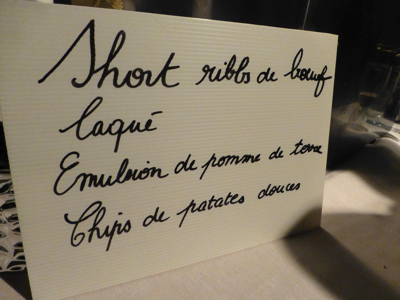 Short ribbs de bœuf
laqué
Emulsion de pomme de terre
Chips de patates douces